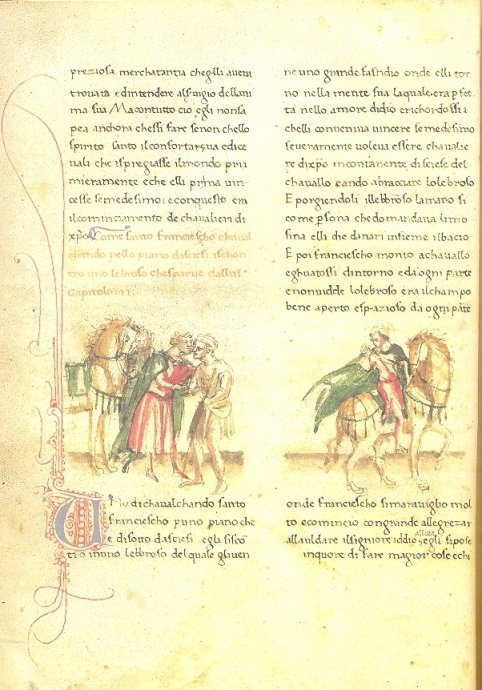 preziosa merchatantia chegli aveva
trovata & dintendere alservigio dellani
ma sua Macontutto ciò egli nonsa
pea anchora chessi fare senon chello
spirito santo il confortava edice
vali che ispregiasse ilmondo pri
mieramente e che elli prima vin
cesse semedesimo: econquesto era
il cominciamento de chavalieri di
xpo Come santo franciescho chaval
chando pello piano dasciesi ischon
tro uno lebroso chesparve dallui
Capitolo
Uno di chavalchando santo
franciescho puno piano che
e disotto dasciesi egli siscō
tro inuno lebroso del quale gliven
ne uno grande fastidio onde elli tor
no nella mente sua laquale era pfet
ta nello amore didio erichordossi
chelli conveniva vincere semedesimo
severamente voleva essere chavalie
re dixpo incontanente discese del
chavallo & ando abraccare lo lebroso
E porgiendoli illebroso lamano si
come psona che domandava limo
sina elli die danari insieme ilbacio
E poi franciescho monto achavallo
eghuatossi dintorno eda ogni parte
enonvidde lolebroso era ilchampo
bene aperto espazioso da ogni parte
onde franciescho simaraviglio mol
to ecomincio congrande allegrezza
allauldare ilsigniore iddio, egli sipose
inquore di fare magior cose echi